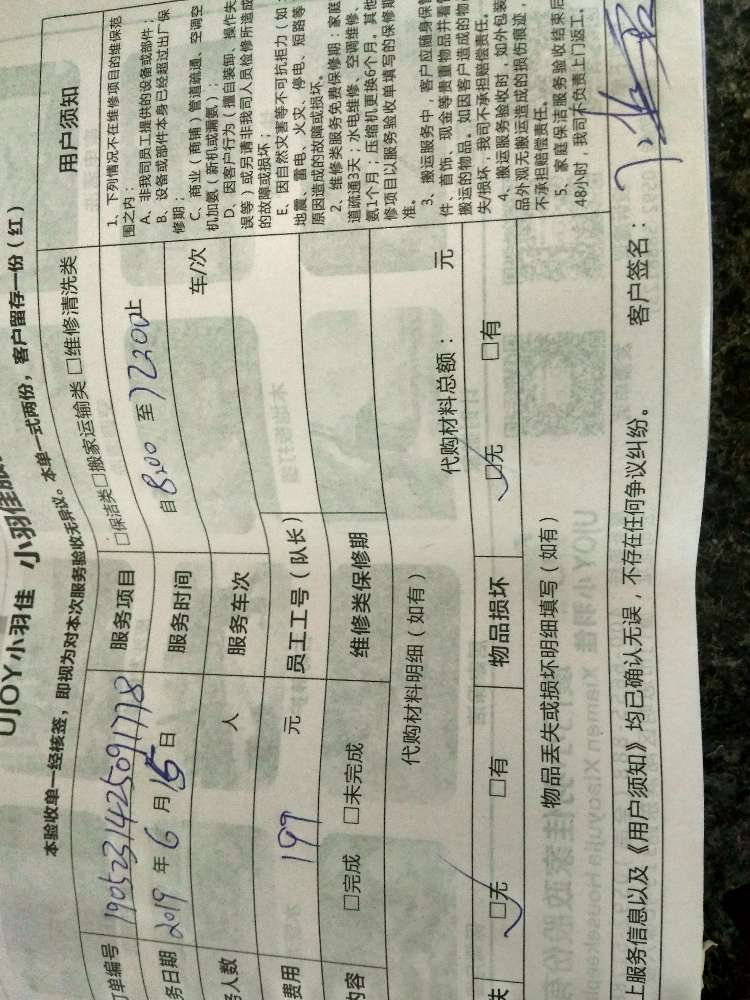 UJOY小羽佳 小羽佳服
本验收单一经核签，即视为对本次服务验收无异议。本单一式两份，客户留存一份（红）
订单编号 1905231425091778 服务项目 □保洁类 □搬家运输类 □维修清洗类
务日期 2019 年 6 月 15 日 服务时间 自 8:00 至 12:00 止
务人数 人 服务车次 车/次
费用 197 元 员工工号（队长）
内容 □完成 □未完成 维修类保修期
代购材料明细（如有） 代购材料总额： 元
失 □无 □有 物品损坏 □无 □有
物品丢失或损坏明细填写（如有）
用户须知
1、下列情况不在维修项目的维保范
围之内：
A、非我司员工提供的设备或部件；
B、设备或部件本身已经超过出厂保
修期；
C、商业（商铺）管道疏通、空调空
机加氨（新机或漏氨）；
D、因客户行为（擅自装卸、操作失
误等）或另请非我司人员检修所造成
的故障或损坏；
E、因自然灾害等不可抗拒力（如：
地震、雷电、火灾、停电、短路等
原因造成的故障或损坏。
2、维修类服务免费保修期：家庭
道疏通3天，水电维修、空调维修、
氨1个月；压缩机更换6个月。其他
修项目以服务验收单填写的保修期
准。
3、搬运服务中，客户应随身保管
件、首饰、现金等贵重物品并看管
搬运的物品。如因客户造成的物品
失/损坏，我司不承担赔偿责任。
4、搬运服务验收时，如外包装
品外观无搬运造成的损伤痕迹，
不承担赔偿责任。
5、家庭保洁服务验收结束后
48小时，我司不负责上门返工。
上服务信息以及《用户须知》均已确认无误，不存在任何争议纠纷。 客户签名：